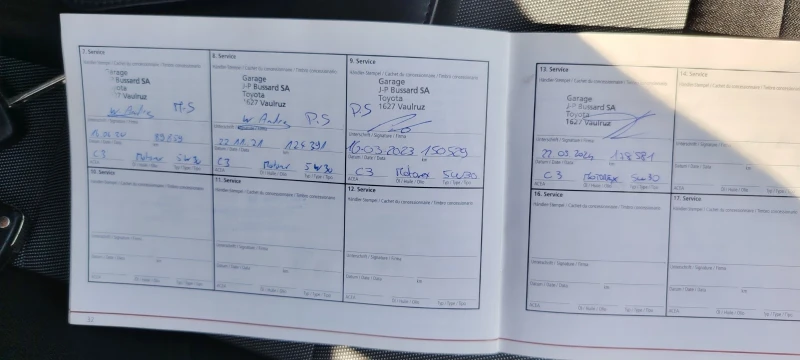 7. Service
Händler-Stempel / Cachet du concessionnaire / Timbro concessionario
Garage
J-P Bussard SA
Toyota
1627 Vaulruz
P.S
Unterschrift / Signature / Firma
Datum / Date / Data km
C3 Motorex 5W30
ACEA Öl / Huile / Olio Typ / Type / Tipo
8. Service
Händler-Stempel / Cachet du concessionnaire / Timbro concessionario
Garage
J-P Bussard SA
Toyota
1627 Vaulruz
P.S
Unterschrift / Signature / Firma
22.11.21 124391
Datum / Date / Data km
C3 Motorex 5W30
ACEA Öl / Huile / Olio Typ / Type / Tipo
9. Service
Händler-Stempel / Cachet du concessionnaire / Timbro concessionario
Garage
J-P Bussard SA
Toyota
1627 Vaulruz
P.S
Unterschrift / Signature / Firma
10.03.2023 150529
Datum / Date / Data km
C3 Motorex 5W30
ACEA Öl / Huile / Olio Typ / Type / Tipo
10. Service
Händler-Stempel / Cachet du concessionnaire / Timbro concessionario
Unterschrift / Signature / Firma
Datum / Date / Data km
ACEA Öl / Huile / Olio Typ / Type / Tipo
11. Service
Händler-Stempel / Cachet du concessionnaire / Timbro concessionario
Unterschrift / Signature / Firma
Datum / Date / Data km
ACEA Öl / Huile / Olio Typ / Type / Tipo
12. Service
Händler-Stempel / Cachet du concessionnaire / Timbro concessionario
Unterschrift / Signature / Firma
Datum / Date / Data km
ACEA Öl / Huile / Olio Typ / Type / Tipo
13. Service
Händler-Stempel / Cachet du concessionnaire / Timbro concessionario
Garage
J-P Bussard SA
Toyota
1627 Vaulruz
Unterschrift / Signature / Firma
Datum / Date / Data km
C3 Motorex 5W30
ACEA Öl / Huile / Olio Typ / Type / Tipo
14. Service
Händler-Stempel / Cachet du
Unterschrift / Signature / Firma
Datum / Date / Data
ACEA
16. Service
Händler-Stempel / Cachet du concessionnaire / Timbro concessionario
Unterschrift / Signature / Firma
Datum / Date / Data km
ACEA Öl / Huile / Olio Typ / Type / Tipo
17. Service
Händler-Stempel / Cachet du concessionnaire
Unterschrift / Signature / Firma
Datum / Date / Data
ACEA